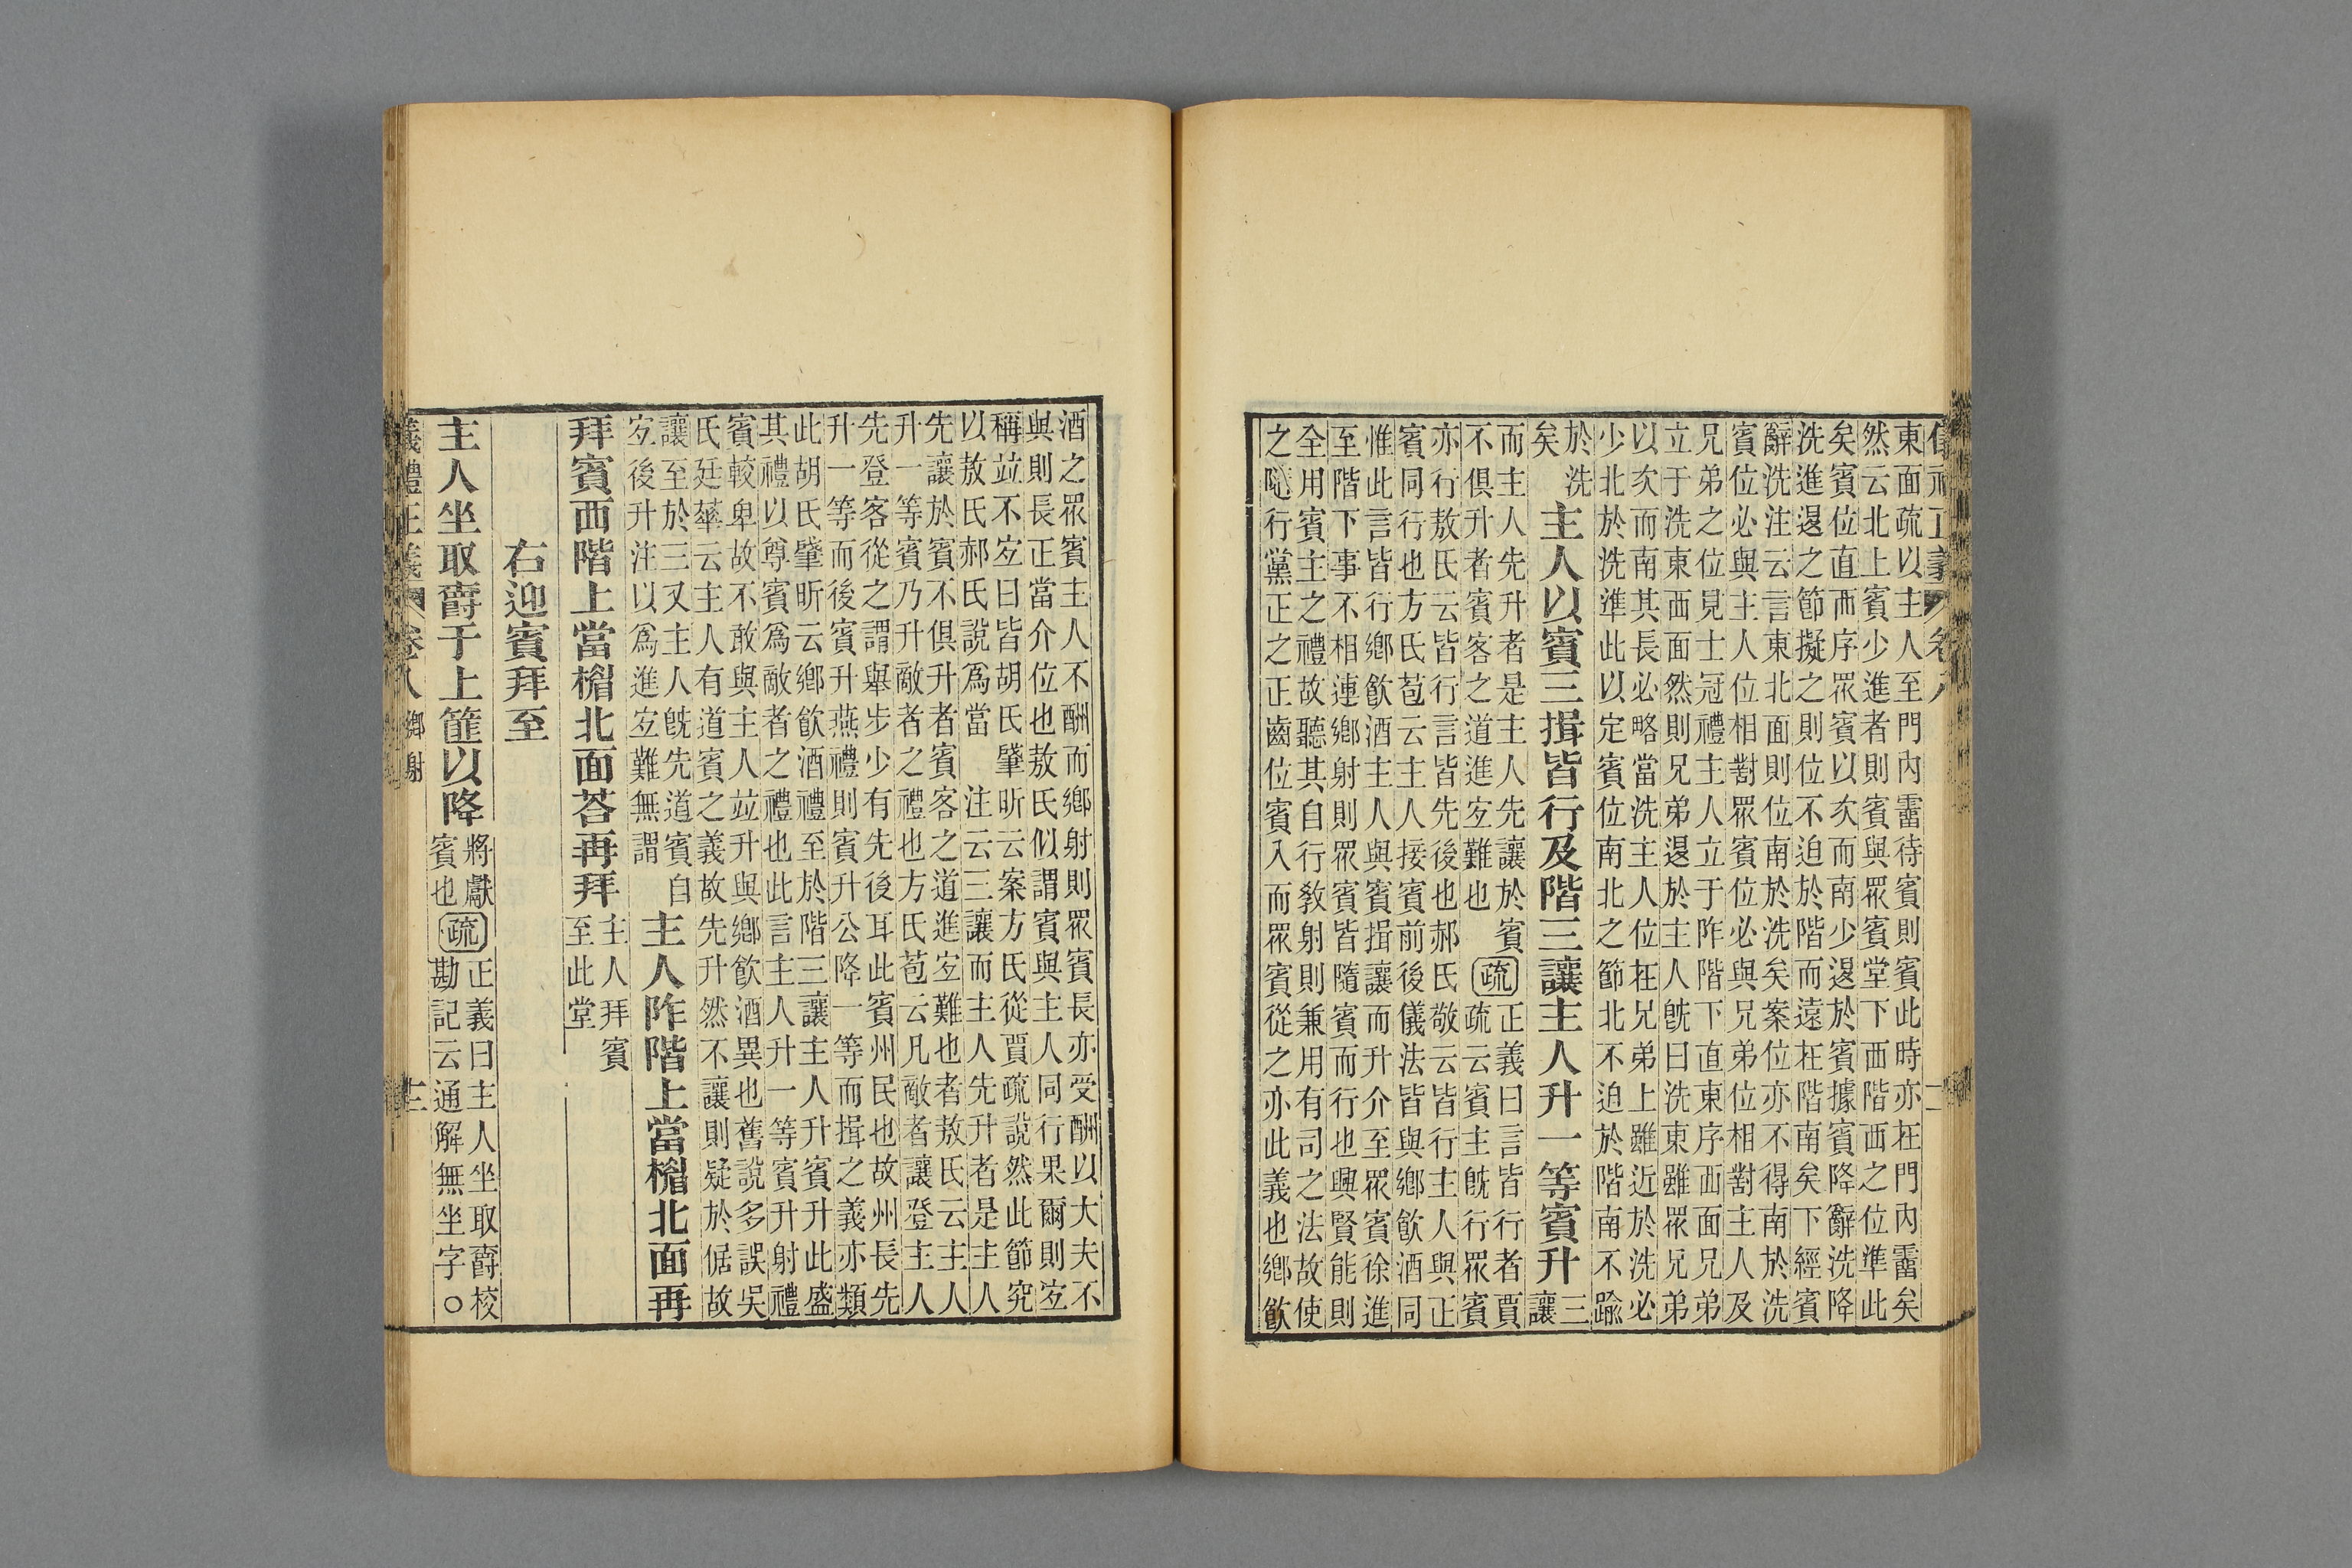 儀禮正義 卷八
東面疏以主人至門內霤待賓則賓此時亦在門內霤矣
然云北上賓少進者則賓與眾賓堂下西階西之位準此
矣賓位直西序眾賓以次而南少退於賓據賓降辭洗降
洗進退之節擬之則位不迫於階而遠在階南矣下經賓
辭洗注云言東北面則位南於洗矣案位亦不得南於洗
賓位必與主人位相對眾賓位必與兄弟位相對主人及
兄弟之位見士冠禮主人立于阼階下直東序西面兄弟
立于洗東西面然則兄弟退於主人既曰洗東雖眾兄弟
以次而南其長必略當洗主人位在兄弟上雖近於洗必
少北於洗準此以定賓位南北之節北不迫於階南不踰
於洗
矣
主人以賓三揖皆行及階三讓主人升一等賓升
三
讓
而主人先升者是主人先讓於賓
不俱升者賓客之道進宜難也
疏
正義曰言皆行者賈
疏云賓主既行眾賓
亦行敖氏云皆行言皆先後也郝氏敬云皆行主人與正
賓同行也方氏苞云主人接賓前後儀法皆與鄉飲酒同
惟此言皆行鄉飲酒主人與賓揖讓而升介至眾賓徐進
至階下事不相連鄉射則眾賓皆隨賓而行也興賢能則
全用賓主之禮故聽其自行敎射則兼用有司之法故使
之隨行黨正之正齒位賓入而眾賓從之亦此義也鄉飲
酒之眾賓主人不酬而鄉射則眾賓長亦受酬以大夫不
與則長正當介位也敖氏似謂賓與主人同行果爾則宜
稱竝不宜曰皆胡氏肇昕云案方氏從賈疏說然此節究
以敖氏郝氏說爲當 注云三讓而主人先升者是主人
先讓於賓不俱升者賓客之道進宜難也者敖氏云主人
升一等賓乃升敵者之禮也方氏苞云凡敵者讓登主人
先登客從之謂舉步少有先後耳此賓州民也故州長先
升一等而後賓升燕禮則賓升公降一等而揖之義亦類
此胡氏肇昕云鄉飲酒禮至於階三讓主人升賓升此盛
其禮以尊賓爲敵者之禮也此言主人升一等賓升射禮
賓較卑故不敢與主人竝升與鄉飲酒異也舊說多誤吳
氏廷華云主人有道賓之義故先升然不讓則疑於倨故
讓至於三又主人既先道賓自
宜後升注以爲進宜難無謂
主人阼階上當楣北面再
拜賓西階上當楣北面荅再拜
主人拜賓
至此堂
右迎賓拜至
主人坐取爵于上篚以降
將獻
賓也
疏
正義曰主人坐取爵校
勘記云通解無坐字○
儀禮正義 卷八 鄉射 十三